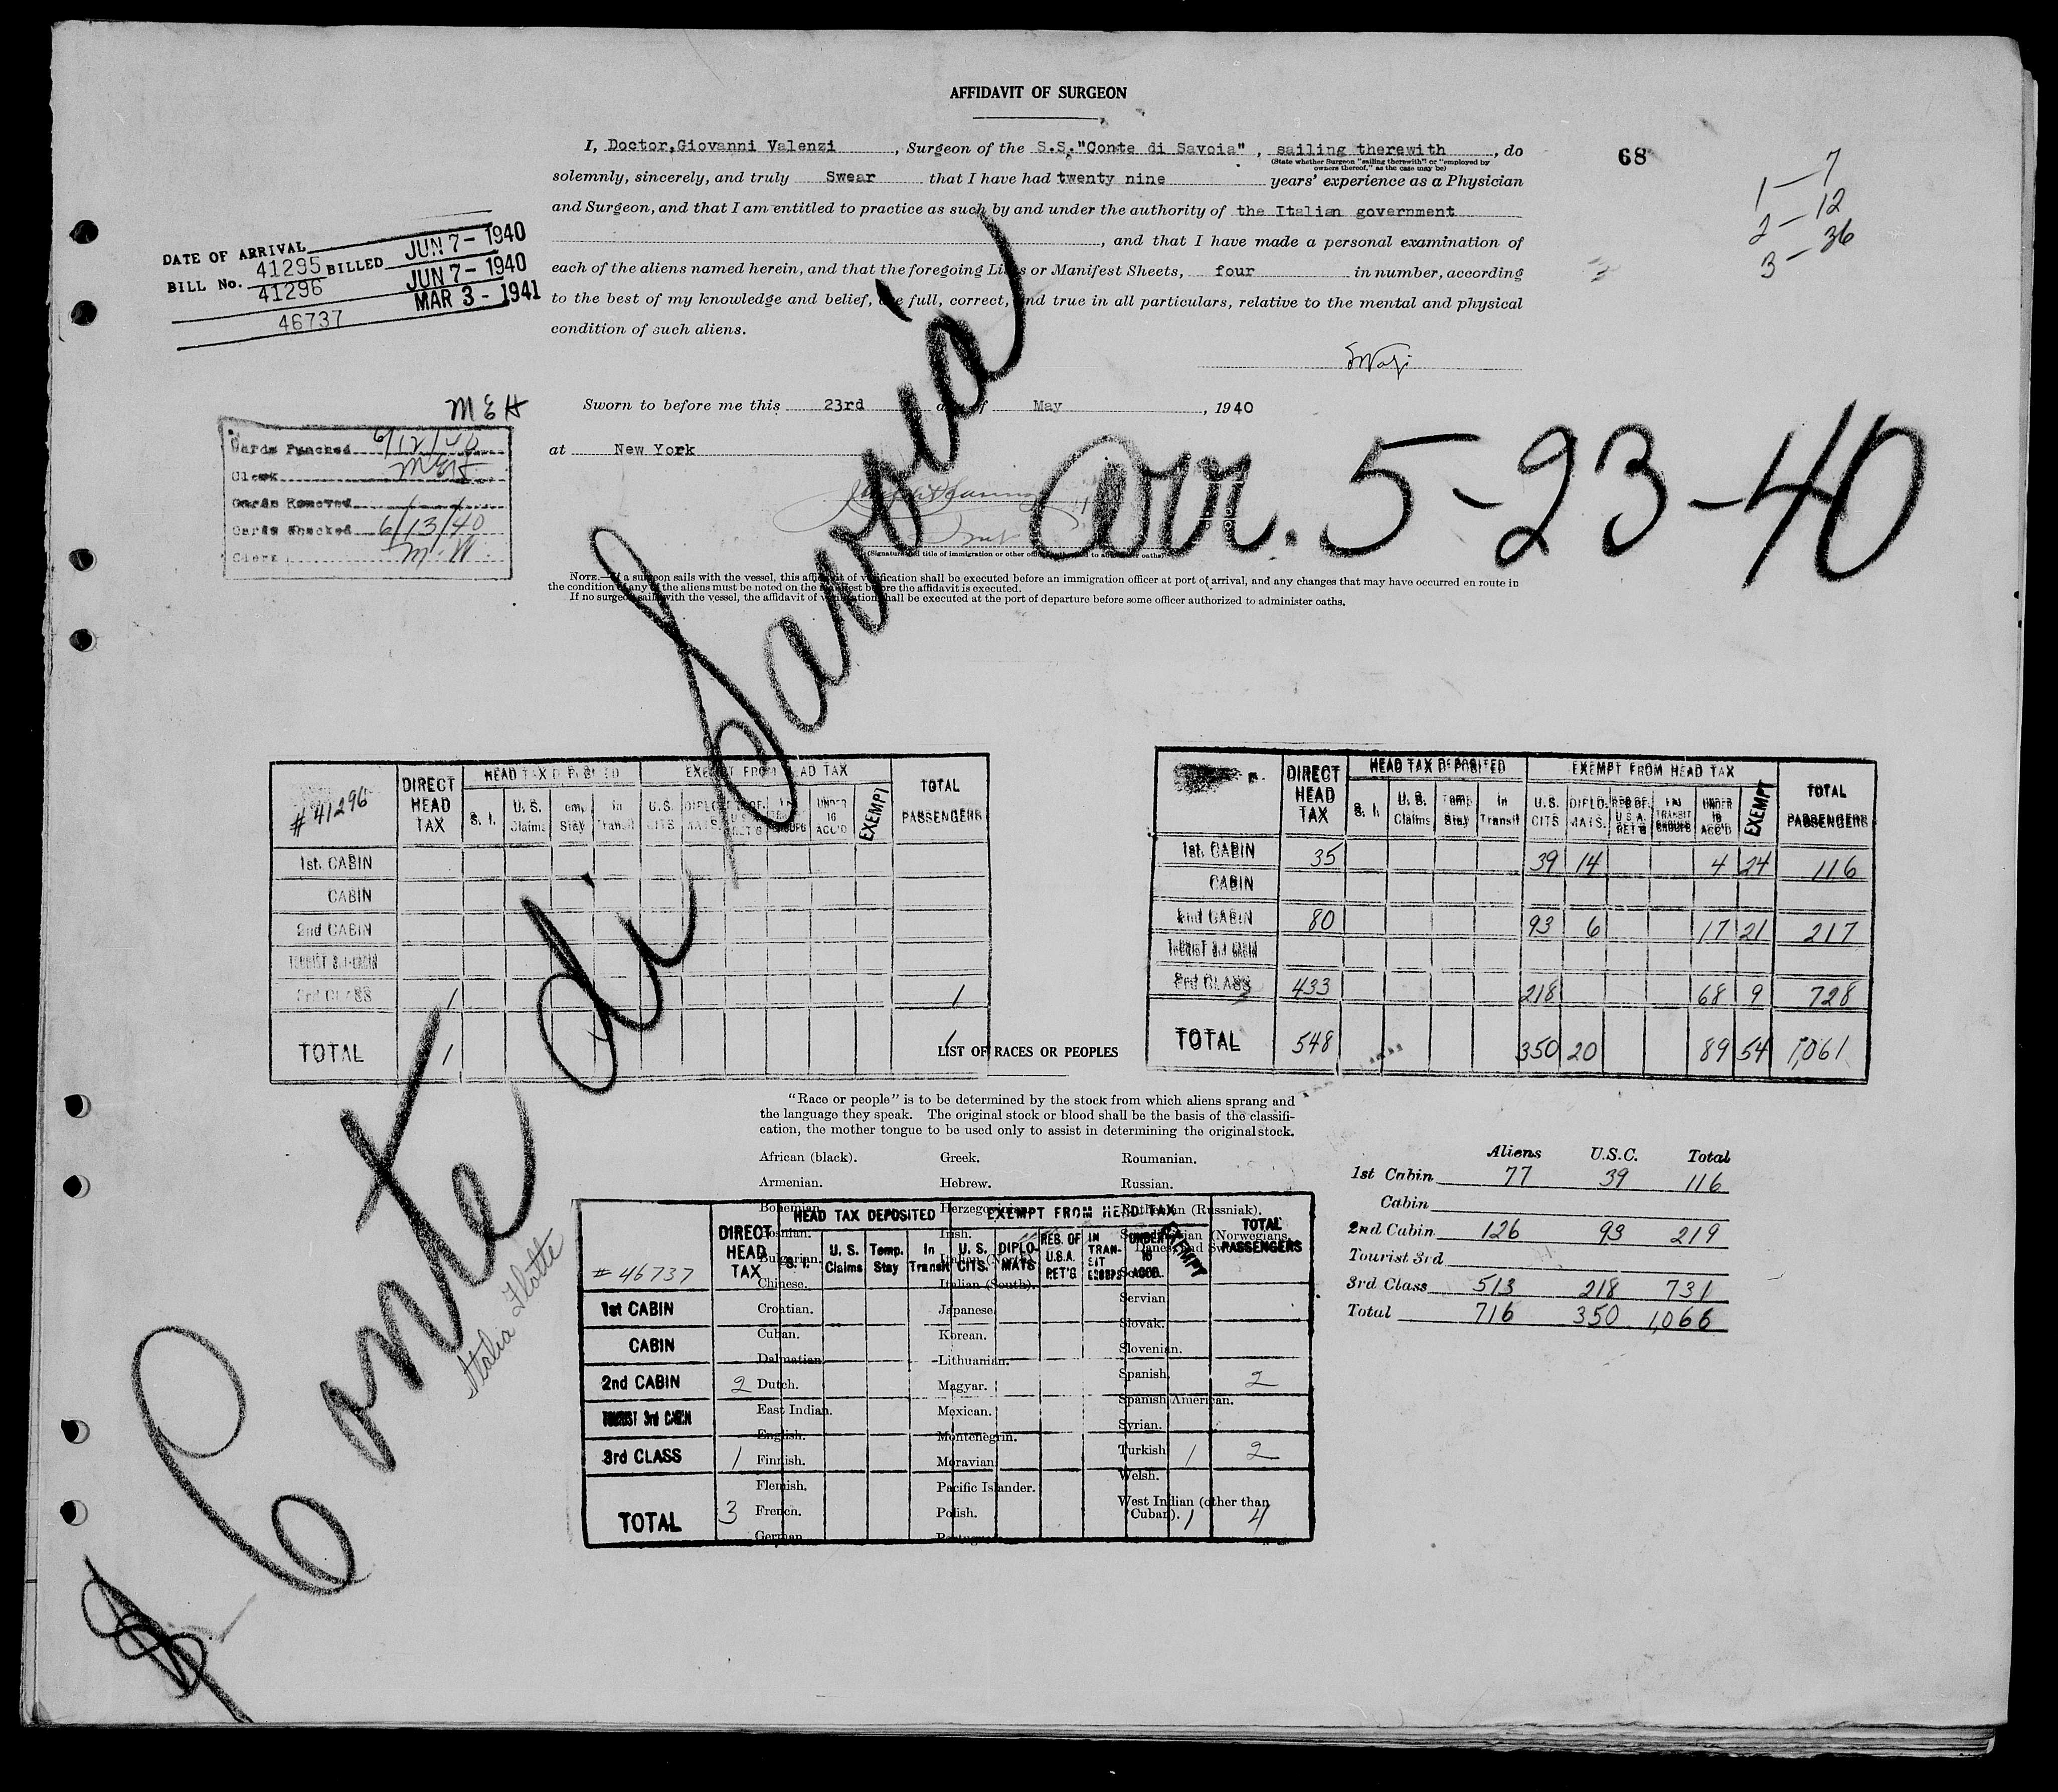 AFFIDAVIT OF SURGEON
I, Doctor, Giovanni Valenzi, Surgeon of the S.S. "Conte di Savoia", sailing therewith, do
(State whether Surgeon "sailing therewith" or "employed by
owners thereof," as the case may be)
solemnly, sincerely, and truly Swear that I have had twenty nine years' experience as a Physician
and Surgeon, and that I am entitled to practice as such by and under the authority of the Italian government
, and that I have made a personal examination of
each of the aliens named herein, and that the foregoing Lists or Manifest Sheets, four in number, according
to the best of my knowledge and belief, are full, correct, and true in all particulars, relative to the mental and physical
condition of such aliens.
68
1 – 7
2 – 12
3 – 36
DATE OF ARRIVAL JUN 7 - 1940
BILL No. 41295 BILLED JUN 7 - 1940
41296 MAR 3 - 1941
46737
Sworn to before me this 23rd day of May, 1940
at New York
(Signature and title of immigration or other officer authorized to administer oaths)
MEH
Cards Punched 6/12/40
Clerk MEH
Cards Removed
Cards Checked 6/13/40
Clerk M.W.
Arr. 5-23-40
SS Conte di Savoia
Italia Flotte
NOTE.—If a surgeon sails with the vessel, this affidavit of verification shall be executed before an immigration officer at port of arrival, and any changes that may have occurred en route in
the condition of any of the aliens must be noted on the manifest before the affidavit is executed.
If no surgeon sails with the vessel, the affidavit of verification shall be executed at the port of departure before some officer authorized to administer oaths.
# 41296 DIRECT HEAD TAX HEAD TAX DEPOSITED EXEMPT FROM HEAD TAX TOTAL PASSENGERS
S. I. U. S. Claims Temp. Stay In Transit U.S. CITS. DIPLOMATS. RES. OF U.S.A. RET'G IN TRANSIT GROUPS UNDER 16 ACC'D EXEMPT
1st. CABIN
CABIN
2nd CABIN
TOURIST 3rd CABIN
3rd CLASS 1 1
TOTAL 1 1
DIRECT HEAD TAX HEAD TAX DEPOSITED EXEMPT FROM HEAD TAX TOTAL PASSENGERS
S. I. U. S. Claims Temp Stay In Transit U.S. CITS DIPLOMATS. RES OF U.S.A. RET'G IN TRANSIT GROUPS UNDER 16 ACC'D EXEMPT
1st. CABIN 35 39 14 4 24 116
CABIN
2nd CABIN 80 93 6 17 21 217
TOURIST 3rd CABIN
3rd CLASS 433 218 68 9 728
TOTAL 548 350 20 89 54 1,061
LIST OF RACES OR PEOPLES
"Race or people" is to be determined by the stock from which aliens sprang and
the language they speak. The original stock or blood shall be the basis of the classifi-
cation, the mother tongue to be used only to assist in determining the original stock.
African (black).
Armenian.
Bohemian.
Bosnian.
Bulgarian.
Chinese.
Croatian.
Cuban.
Dalmatian.
Dutch.
East Indian.
English.
Finnish.
Flemish.
French.
German.
Greek.
Hebrew.
Herzegovinian.
Irish.
Italian (North).
Italian (South).
Japanese.
Korean.
Lithuanian.
Magyar.
Mexican.
Montenegrin.
Moravian.
Pacific Islander.
Polish.
Roumanian.
Russian.
Ruthenian (Russniak).
Scandinavian (Norwegians,
Danes, and Swedes).
Servian.
Slovak.
Slovenian.
Spanish.
Spanish American.
Syrian.
Turkish.
Welsh.
West Indian (other than
Cuban).
# 46737 DIRECT HEAD TAX HEAD TAX DEPOSITED EXEMPT FROM HEAD TAX TOTAL PASSENGERS
S. I. U. S. Claims Temp. Stay In Transit U. S. CITS. DIPLOMATS RES. OF U.S.A. RET'G IN TRANSIT GROUPS UNDER 16 ACCD. EXEMPT
1st CABIN
CABIN
2nd CABIN 2 2
TOURIST 3rd CABIN
3rd CLASS 1 1 2
TOTAL 3 1 4
Aliens U.S.C. Total
1st Cabin 77 39 116
Cabin
2nd Cabin 126 93 219
Tourist 3rd
3rd Class 513 218 731
Total 716 350 1,066